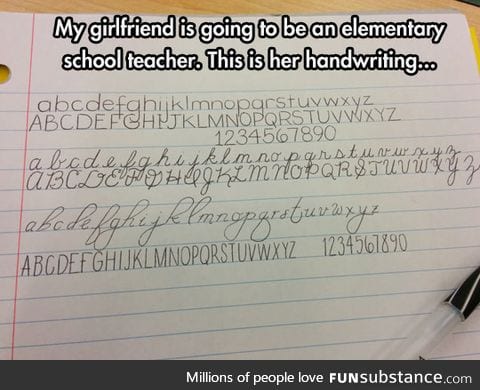 My girlfriend is going to be an elementary
school teacher. This is her handwriting...
abcdefghijklmnopqrstuvwxyz
ABCDEFGHIJKLMNOPQRSTUVWXYZ
1234567890
abcdefghijklmnopqrstuvwxyz
ABCDEFGHIJKLMNOPQRSTUVWXYZ
abcdefghijklmnopqrstuvwxyz
ABCDEFGHIJKLMNOPQRSTUVWXYZ 1234567890
Millions of people love FUNsubstance.com